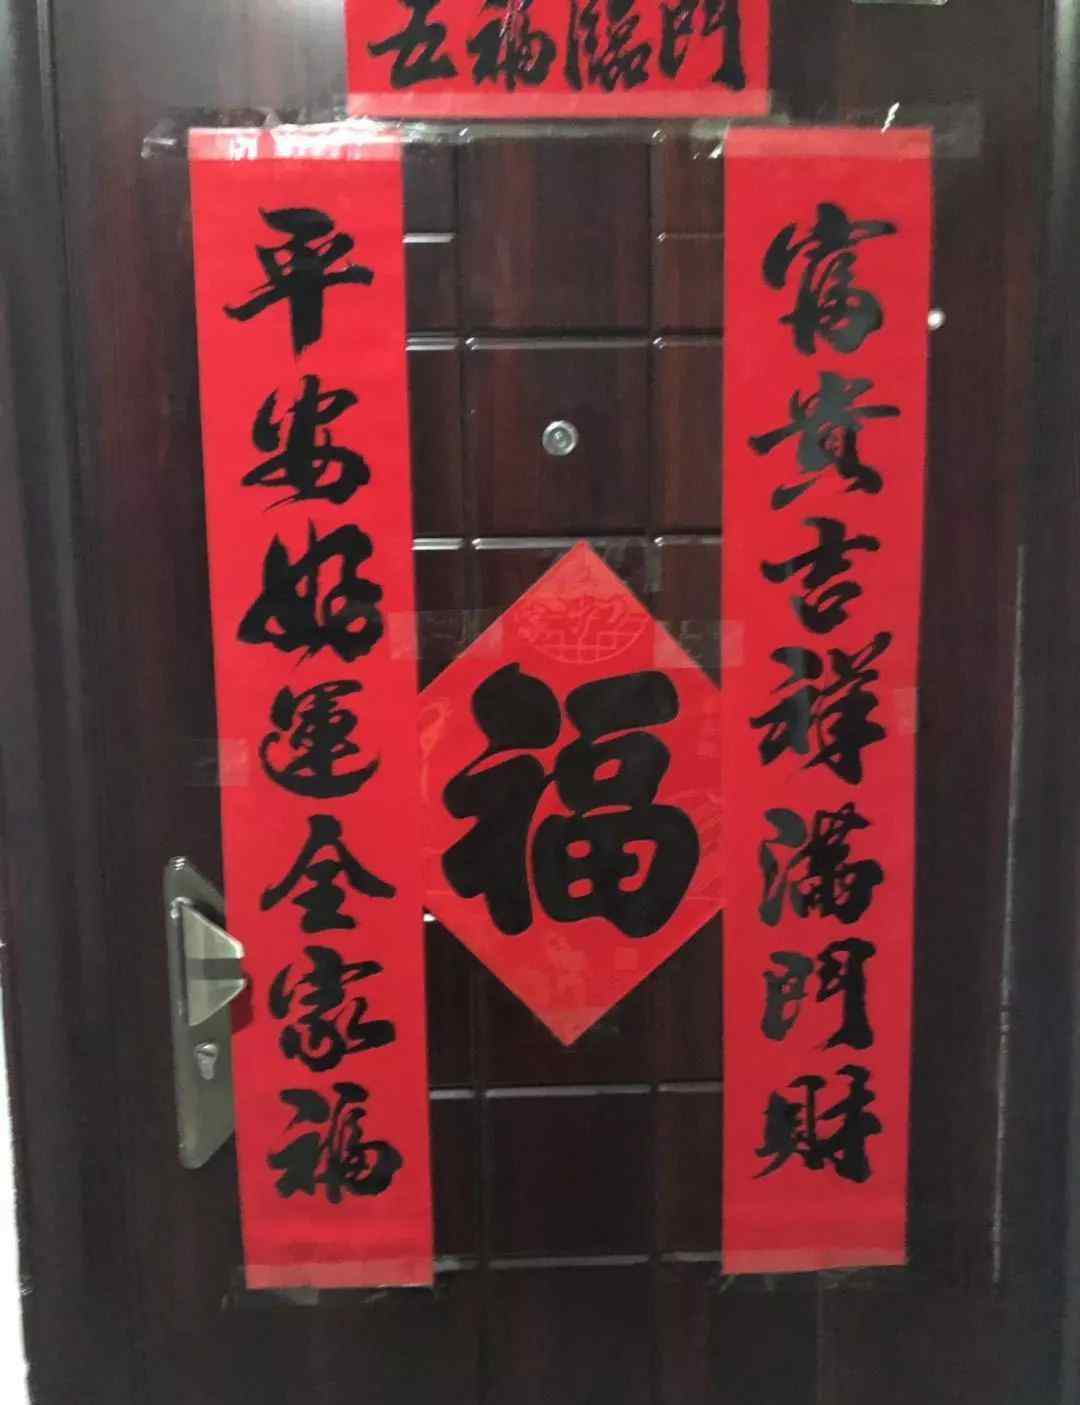 五福臨門
富貴吉祥滿門財
平安好運全家福
福